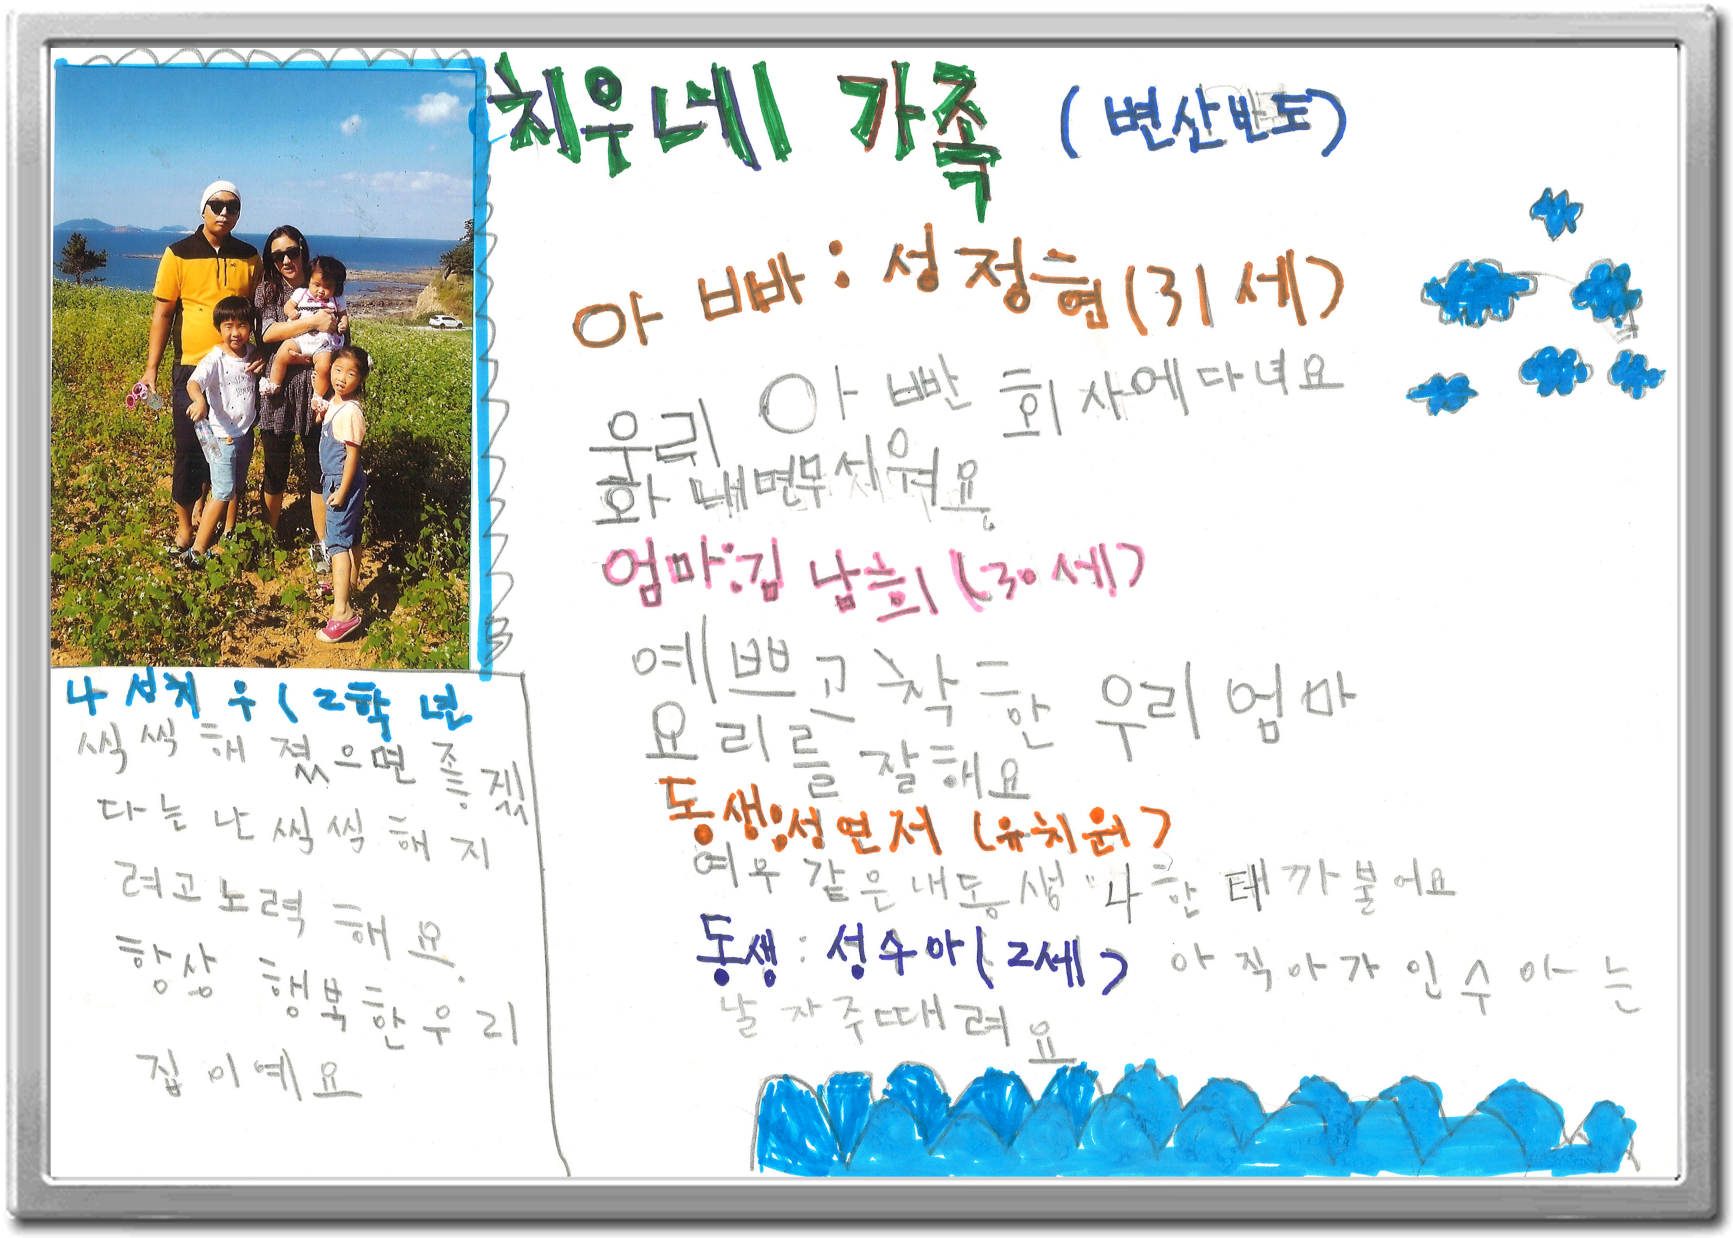 치우네 가족 (변산반도)
아빠 : 성정현 (31세)
우리 아빤 회사에다녀요
화내면무서워요.
엄마:김남희 (30세)
예쁘고 착한 우리 엄마
요리를 잘해요
동생:성연저 (유치원)
여우 같은 내동생 나한태 까불어요
동생 : 성수아 (2세) 아직아가인수아는
날 자주때려요
나 성치우 (2학년
씩씩해 졌으면 좋겠
다는 난 씩씩해지
려고 노력해요.
항상 행복한우리
집이예요